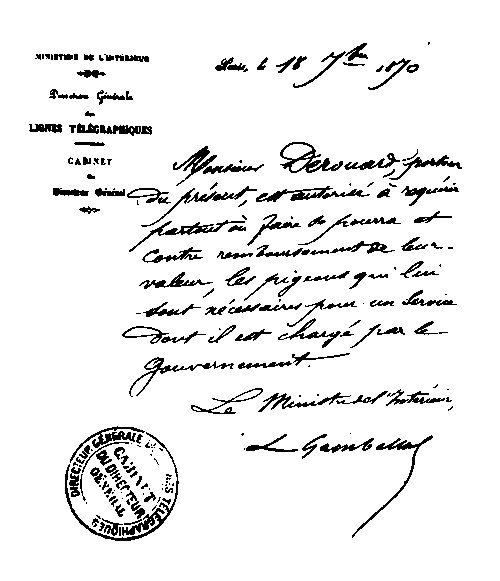 MINISTÈRE DE L'INTÉRIEUR
Direction Générale
des
LIGNES TÉLÉGRAPHIQUES
CABINET
du
Directeur Général
Paris, le 18 7bre 1870
Monsieur Derouard, porteur
du présent, est autorisé à requérir
partout où faire se pourra et
contre remboursement de leur
valeur, les pigeons qui lui
sont nécessaires pour un service
dont il est chargé par le
Gouvernement.
Le Ministre de l'Intérieur,
L Gambetta
DIRECTEUR GÉNÉRAL DES LIGNES TÉLÉGRAPHIQUES
CABINET
DU DIRECTEUR
GÉNÉRAL